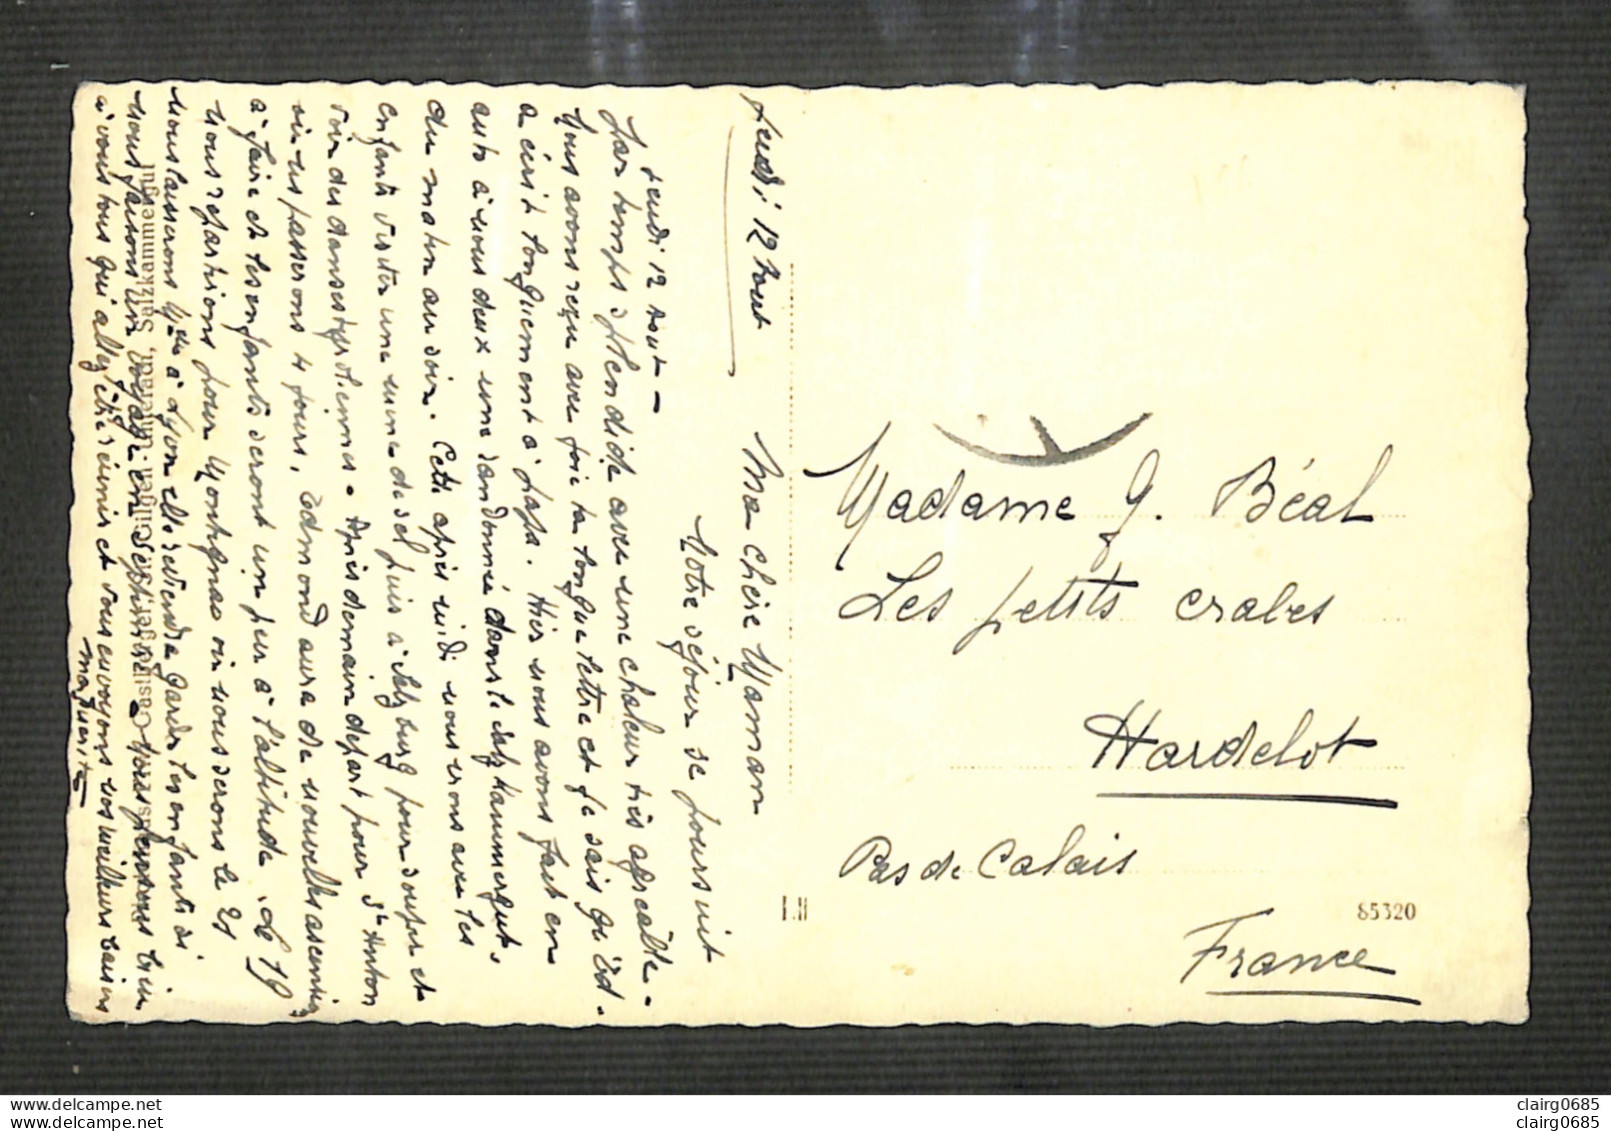 Jeudi 12 Aout
Ma chère Maman
Notre séjour se poursuit
Jeudi 12 Aout —
par temps splendide avec une chaleur très agréable -
Nous avons reçu avec joie ta longue lettre et je sais qu'Ed.
a écrit longuement à Papa. Hier nous avons fait en
auto à nous deux une randonnée dans le Salzkammergut.
du matin au soir. Cette après midi nous irons avec les
enfants visiter une mine de sel puis à Salzburg pour souper et
voir des danses tyroliennes - Après demain départ pour St Anton
où nous passerons 4 jours, Edmond aura de nouvelles ascensions
à faire et les enfants seront un peu à l'altitude. Le 19
nous repartirons pour Montgnac où nous serons le 21
nous laisserons à Lyon elle viendra garder les enfants si
nous faisons un voyage en Septembre. Nous pensons bien
à vous tous qui allez être réunis et vous envoyons nos meilleurs baisers
Marguerite
St. Gilgen-Unterach, Salzkammergut
Madame G. Béal
Les petits crabes
Hardelot
Pas de Calais
France
85320
clairg0685
clairg0685
www.delcampe.net
www.delcampe.net